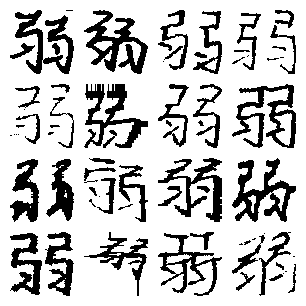 弱弱弱弱
弱弱弱弱
弱弱弱弱
弱弱弱弱